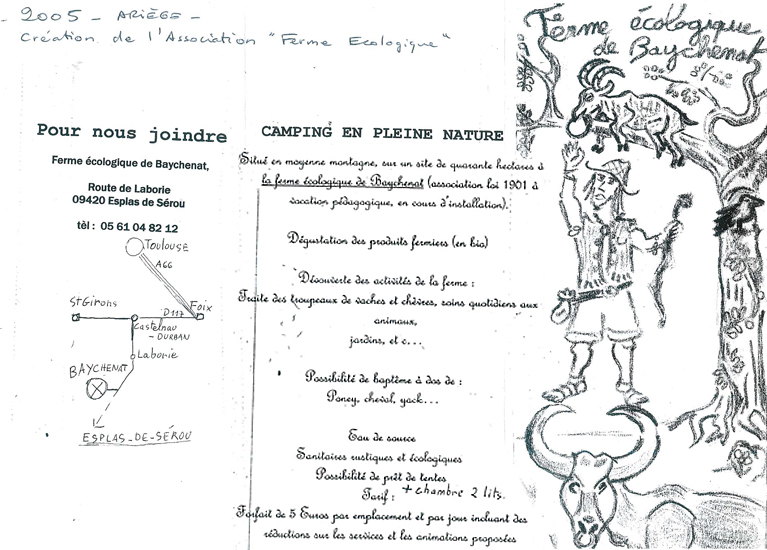 - 2005 - ARIÈGE -
Création de l'Association "Ferme Ecologique"
Pour nous joindre
Ferme écologique de Baychenat,
Route de Laborie
09420 Esplas de Sérou
tèl : 05 61 04 82 12
Toulouse
A66
St Girons
Foix
D117
Castelnau
- DURBAN
Laborie
BAYCHENAT
ESPLAS-DE-SÉROU
CAMPING EN PLEINE NATURE
Situé en moyenne montagne, sur un site de quarante hectares à
la ferme écologique de Baychenat (association loi 1901 à
vocation pédagogique, en cours d'installation).
Dégustation des produits fermiers (en bio)
Découverte des activités de la ferme :
Traite des troupeaux de vaches et chèvres, soins quotidiens aux
animaux,
jardins, et c...
Possibilité de baptême à dos de :
Poney, cheval, yack...
Eau de source
Sanitaires rustiques et écologiques
Possibilité de prêt de tentes
+ chambre 2 lits.
Tarif :
Forfait de 5 Euros par emplacement et par jour incluant des
réductions sur les services et les animations proposées
Ferme écologique
de Baychenat